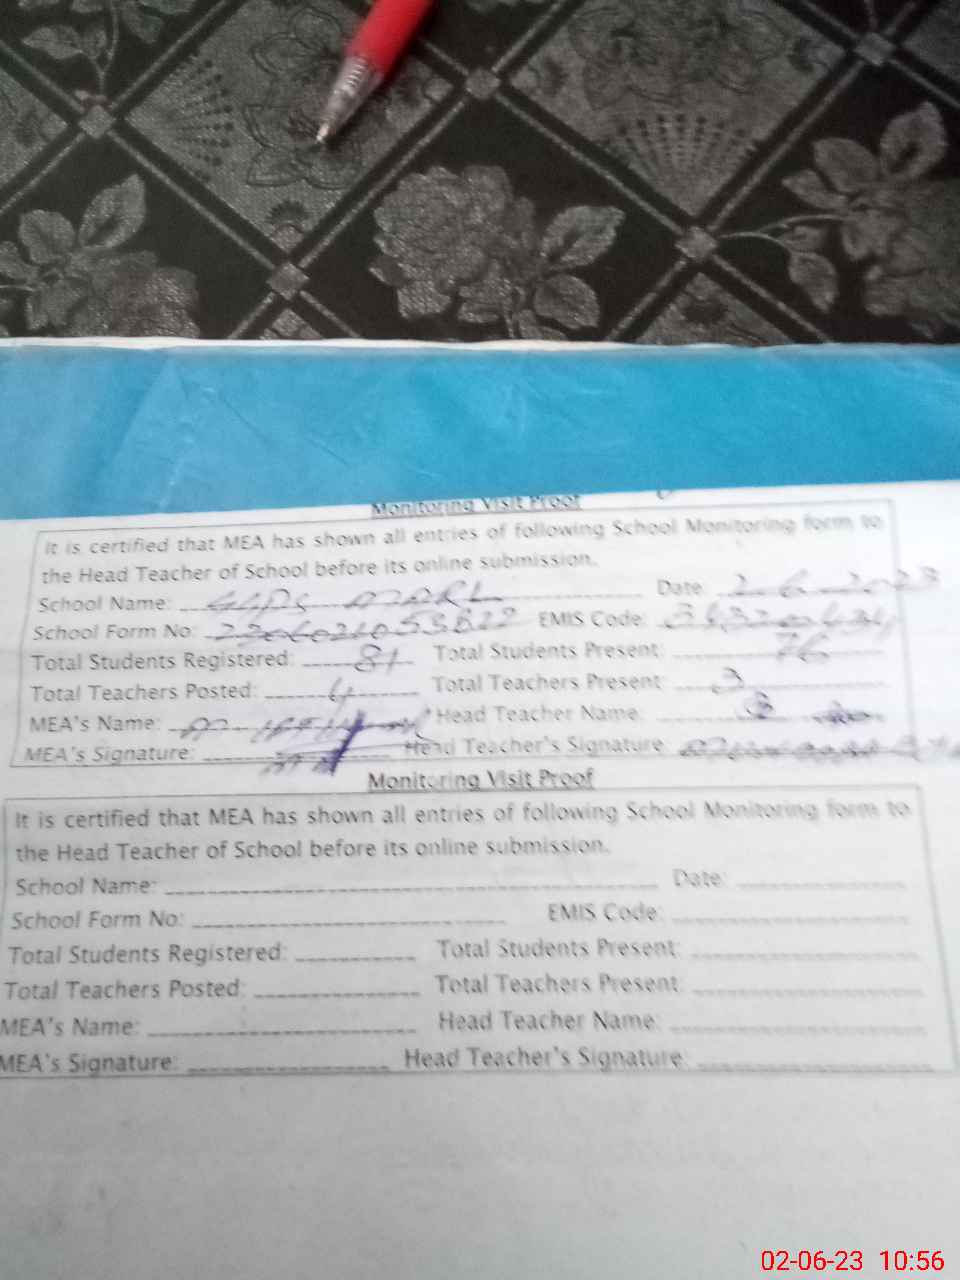 Monitoring Visit Proof
It is certified that MEA has shown all entries of following School Monitoring form to
the Head Teacher of School before its online submission.
School Name: Date: 2-6-2023
School Form No: EMIS Code:
Total Students Registered: 81 Total Students Present: 76
Total Teachers Posted: 4 Total Teachers Present: 3
MEA's Name: Head Teacher Name:
MEA's Signature: Head Teacher's Signature:
Monitoring Visit Proof
It is certified that MEA has shown all entries of following School Monitoring form to
the Head Teacher of School before its online submission.
School Name: Date:
School Form No: EMIS Code:
Total Students Registered: Total Students Present:
Total Teachers Posted: Total Teachers Present:
MEA's Name: Head Teacher Name:
MEA's Signature: Head Teacher's Signature:
02-06-23 10:56